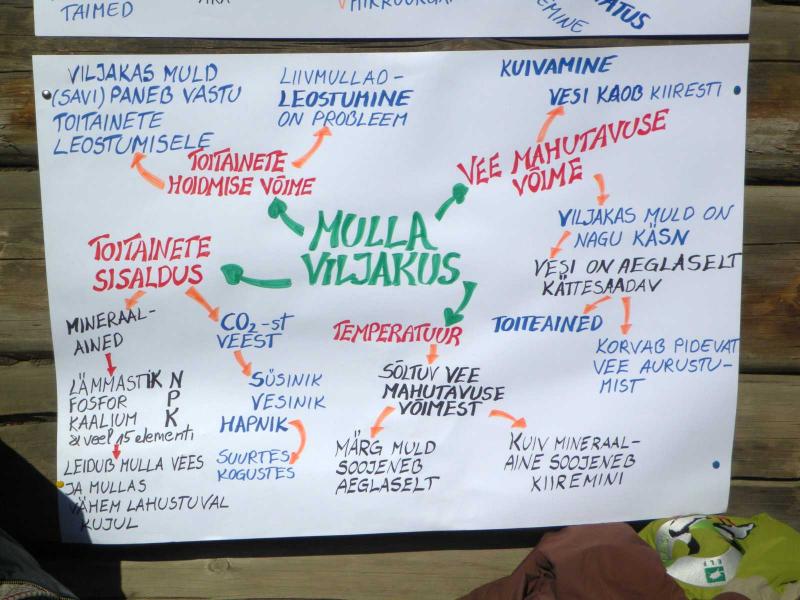 TAIMED
VIIJAKAS MULD
(SAVI) PANEB VASTU
TOITAINETE
LEOSTUMISELE
LIIVMULLAD-
LEOSTUMINE
ON PROBLEEM
KUIVAMINE
VESI KAOB KIIRESTI
TOITAINETE
HOIDMISE VÕIME
VEE MAHUTAVUSE
VÕIME
MULLA
VILJAKUS
VILJAKAS MULD ON
NAGU KÄSN
VESI ON AEGLASELT
KÄTTESAADAV
TOITEAINED
KORVAB PIDEVAT
VEE AURUSTU-
MIST
TOITAINETE
SISALDUS
MINERAAL-
AINED
LÄMMASTIK N
FOSFOR P
KAALIUM K
& veel 15 elementi
LEIDUB MULLA VEES
JA MULLAS
VÄHEM LAHUSTUVAL
KUJUL
CO2-st
VEEST
SÜSINIK
VESINIK
HAPNIK
SUURTES
KOGUSTES
TEMPERATUUR
SÕLTUV VEE
MAHUTAVUSE
VÕIMEST
MÄRG MULD
SOOJENEB
AEGLASELT
KUIV MINERAAL-
AINE SOOJENEB
KIIREMINI
ELF